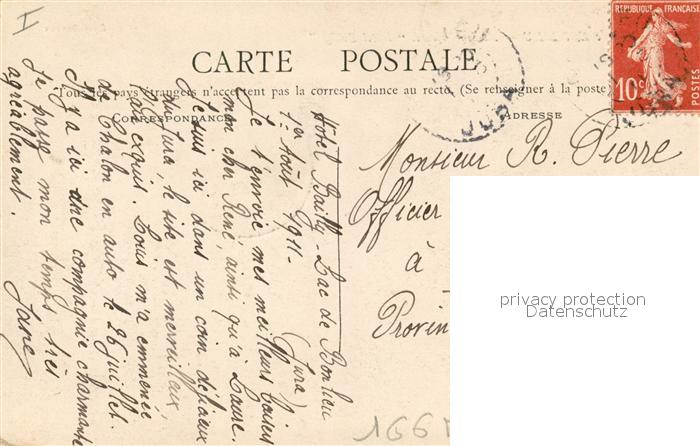 I
RÉPUBLIQUE FRANÇAISE
10c
POSTES
JURA
CARTE POSTALE
Tous les pays étrangers n'acceptent pas la correspondance au recto. (Se renseigner à la poste)
CORRESPONDANCE
ADRESSE
Hôtel Bailly - Lac de Bonlieu
(Jura)
1er août 1911-
Je t'envoie mes meilleurs baisers
mon cher René, ainsi qu'à Laure.
Je suis ici dans un coin délicieux
du Jura, le site est merveilleux,
l'air exquis. Louis m'a emmenée
de Chalon en auto le 26 juillet.
Il y a ici une compagnie charmante
Je passe mon temps très
agréablement.
Jane
Monsieur R. Pierre
Officier
à
Provin
privacy protection
Datenschutz